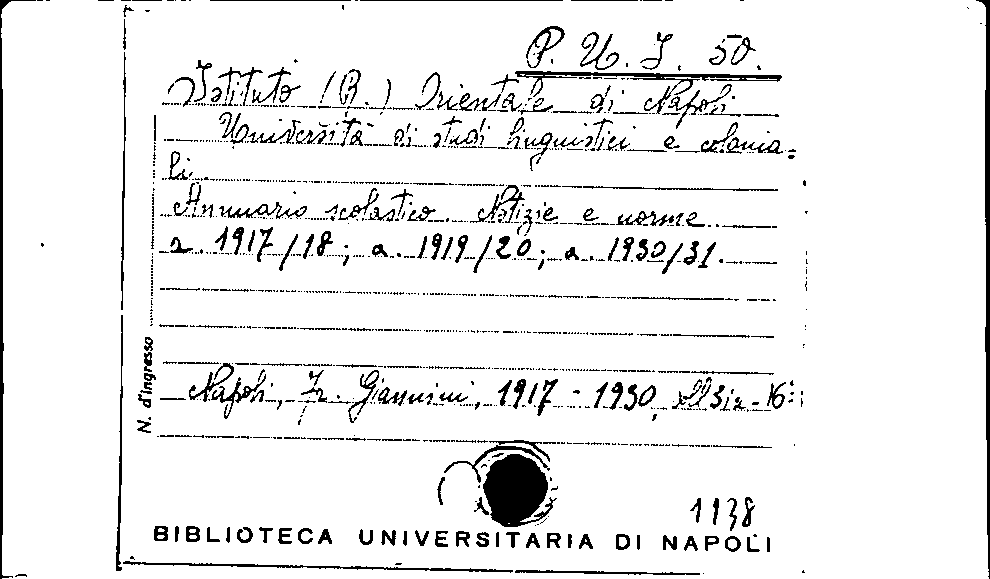 P. U. I. 50.
Istituto (R.) Orientale di Napoli
Università di studi linguistici e colonia=
li.
Annuario scolastico. Notizie e norme.
a. 1917/18; a. 1919/20; a. 1930/31.
N. d'ingresso
Napoli, Fr. Giannini, 1917 - 1930, 16°
1138
BIBLIOTECA UNIVERSITARIA DI NAPOLI